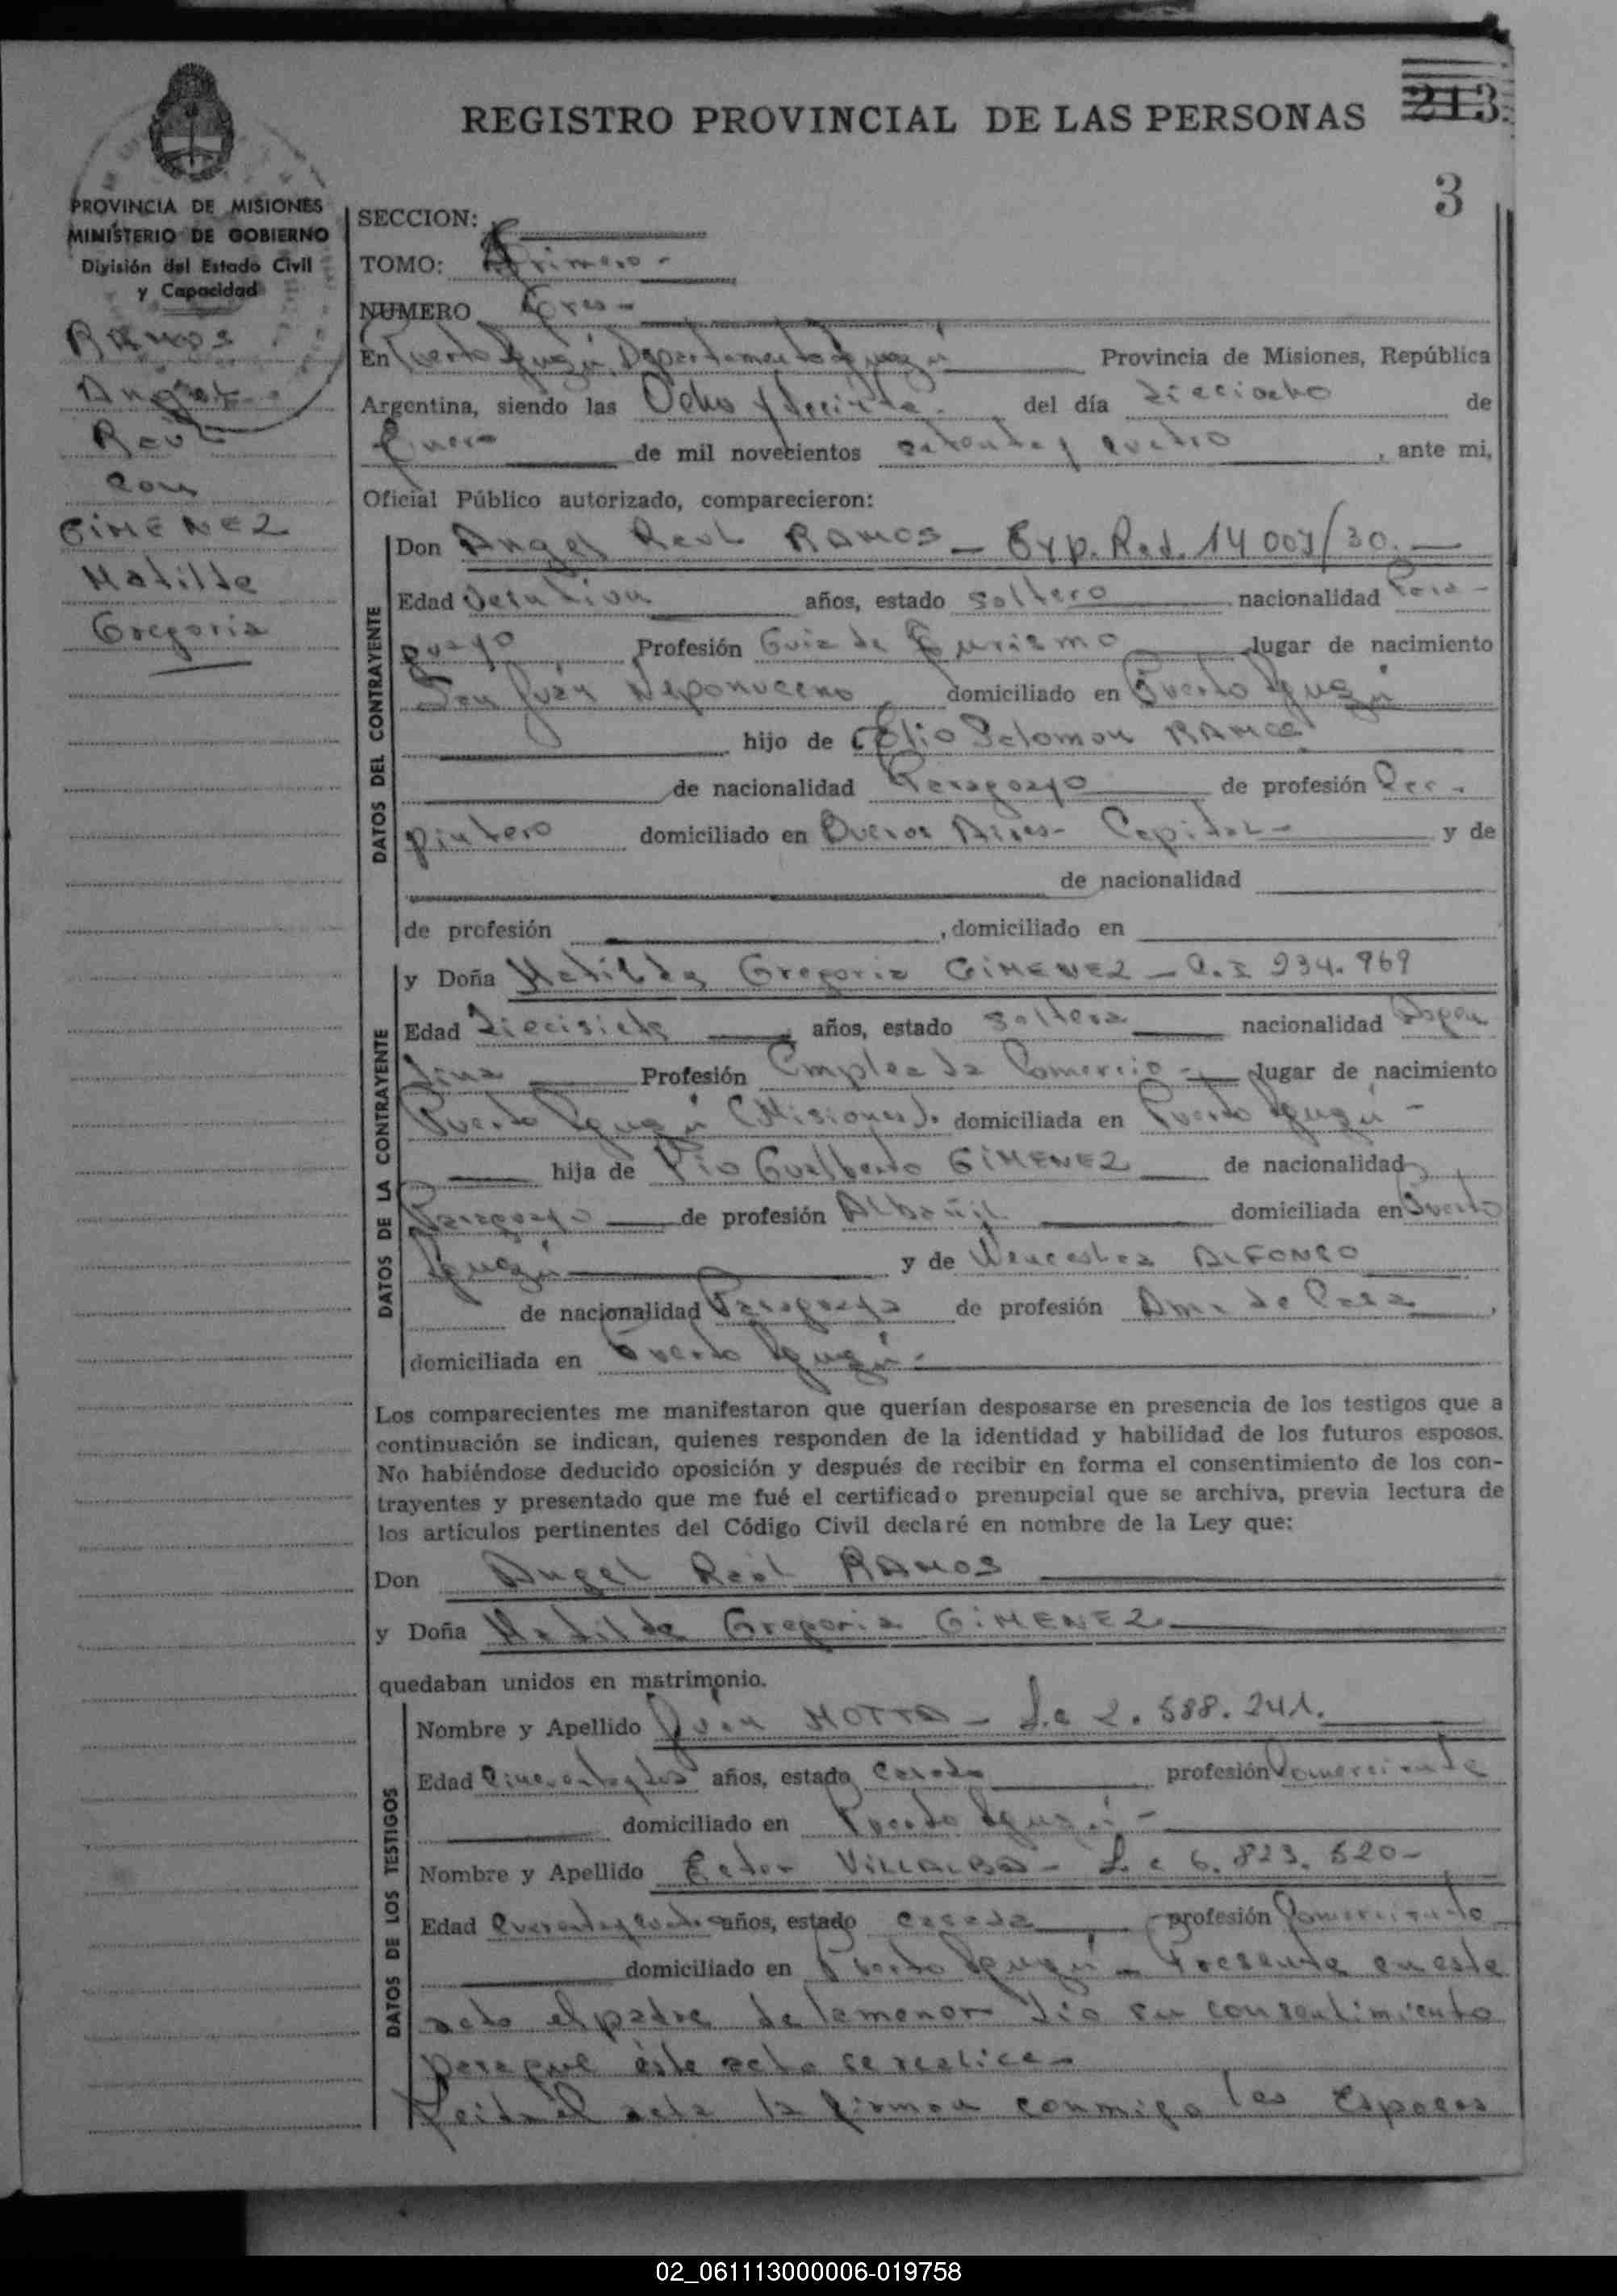 REGISTRO PROVINCIAL DE LAS PERSONAS
213
3
PROVINCIA DE MISIONES
MINISTERIO DE GOBIERNO
División del Estado Civil
y Capacidad
RAMOS
Angel
Raúl
con
GIMENEZ
Matilde
Gregoria
SECCION:
TOMO: Primero -
NUMERO Tres -
En Puerto Iguazú, Departamento Iguazú Provincia de Misiones, República
Argentina, siendo las Ocho y treinta del día dieciocho de
Enero de mil novecientos setenta y cuatro, ante mi,
Oficial Público autorizado, comparecieron:
DATOS DEL CONTRAYENTE
Don Angel Raul RAMOS - Exp. Rad. 14 007/30. -
Edad años, estado soltero nacionalidad Para-
guayo Profesión Guia de Turismo lugar de nacimiento
San Juan Neponuceno domiciliado en Puerto Iguazú
hijo de Elio Salomon RAMOS
de nacionalidad Paraguayo de profesión Car-
pintero domiciliado en Buenos Aires - Capital - y de
de nacionalidad
de profesión , domiciliado en
DATOS DE LA CONTRAYENTE
y Doña Matilde Gregoria GIMENEZ - C.I 234.969
Edad Diecisiete años, estado soltera nacionalidad Argen
tina Profesión Empleada Comercio - lugar de nacimiento
Puerto Iguazú (Misiones). domiciliada en Puerto Iguazú -
hija de Pio Gualberto GIMENEZ de nacionalidad
Paraguayo de profesión Albañil domiciliada en Puerto
Iguazú y de Wenceslaa ALFONSO
de nacionalidad Paraguaya de profesión Ama de Casa,
domiciliada en Puerto Iguazú -
Los comparecientes me manifestaron que querían desposarse en presencia de los testigos que a
continuación se indican, quienes responden de la identidad y habilidad de los futuros esposos.
No habiéndose deducido oposición y después de recibir en forma el consentimiento de los con-
trayentes y presentado que me fué el certificado prenupcial que se archiva, previa lectura de
los artículos pertinentes del Código Civil declaré en nombre de la Ley que:
Don Angel Raúl RAMOS
y Doña Matilde Gregoria GIMENEZ.
quedaban unidos en matrimonio.
DATOS DE LOS TESTIGOS
Nombre y Apellido Juan MOTTA - L.e 2.588.241.
Edad años, estado Casado profesión Comerciante
domiciliado en Puerto Iguazú -
Nombre y Apellido Ector VILLALBA - L.e 6.823.520 -
Edad Cuarenta y cuatro años, estado casado profesión Comerciante
domiciliado en Puerto Iguazú - Presente en este
acto el padre de la menor dio su consentimiento
para que éste acto se realice -
Leida el acta la firman conmigo los Esposos
02_061113000006-019758